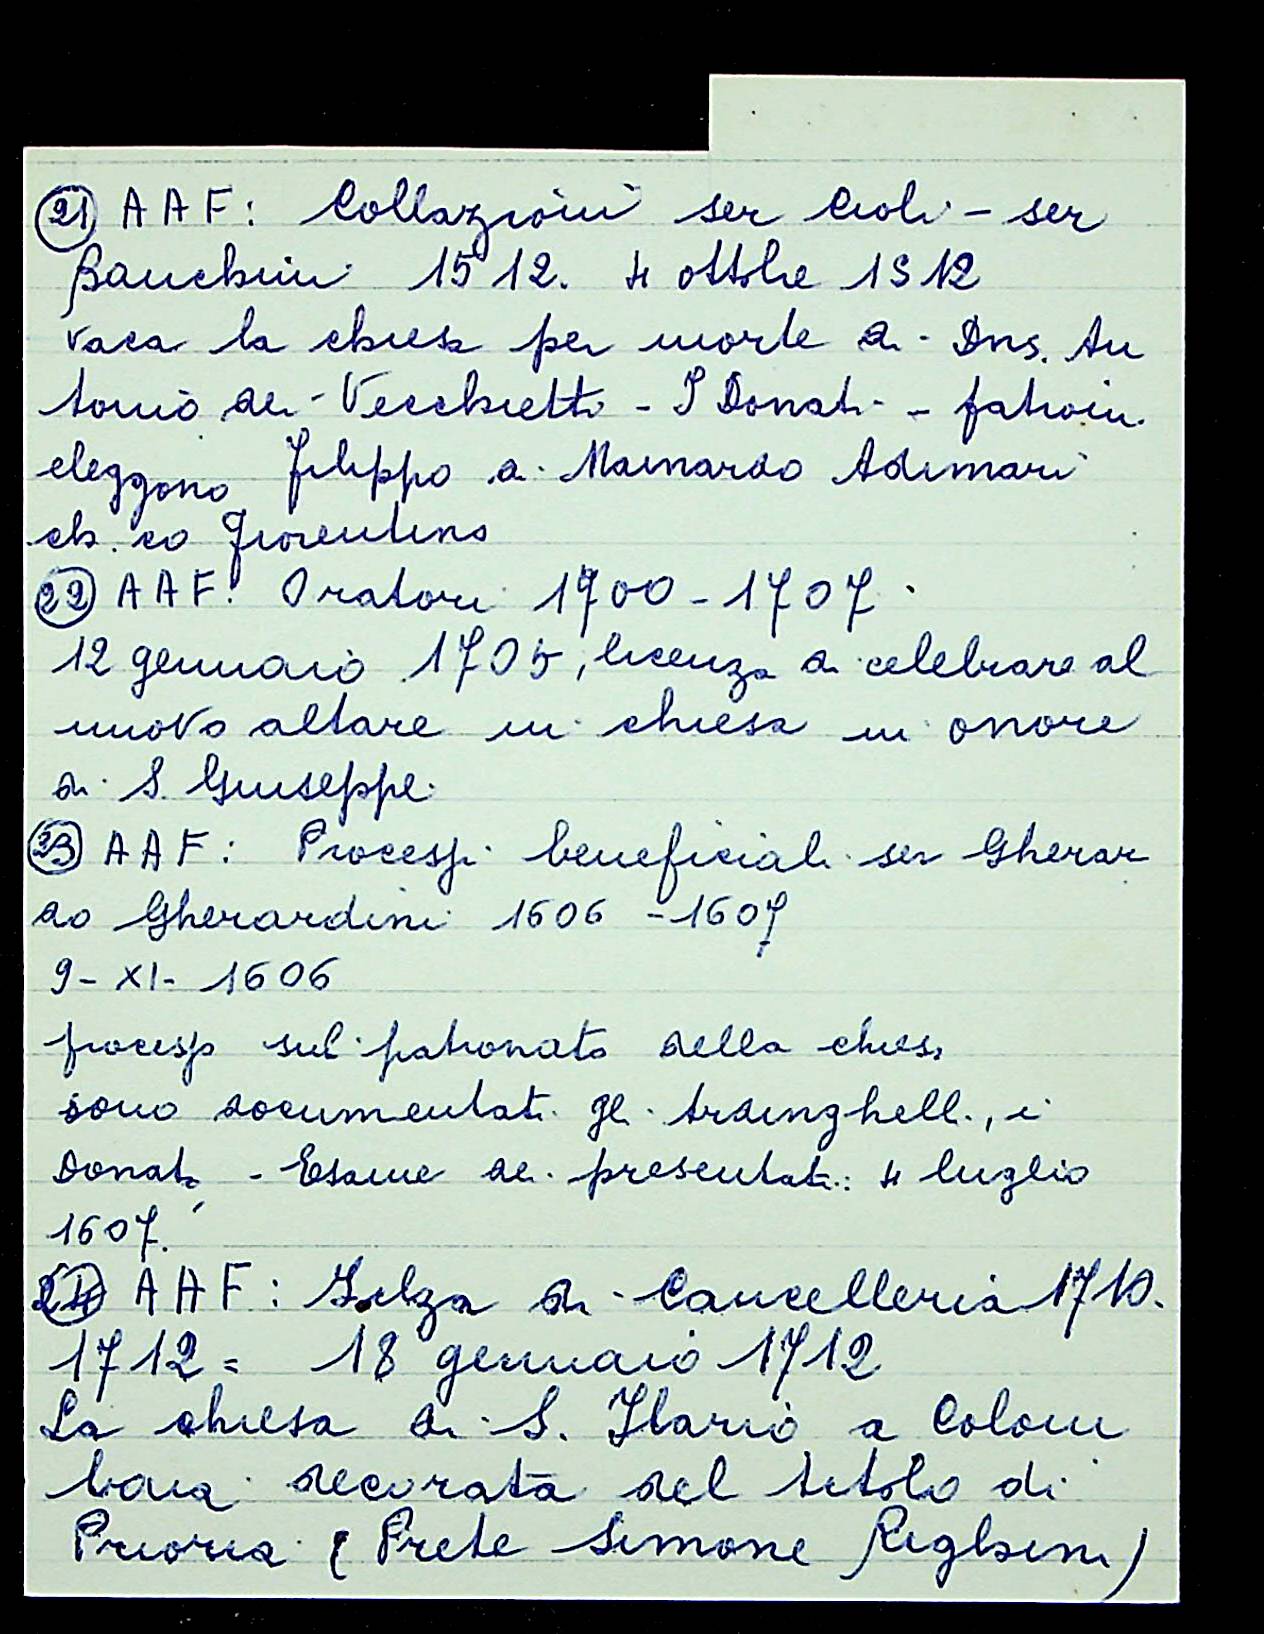 21 AAF: Collazioni ser Cioli - ser
Banchini 1512. 4 ottbre 1512
vaca la chiesa per morte di Dns. An
tonio dei Vecchietti - I Donati - patroni
eleggono Filippo di Mainardo Adimari
ch. co fiorentino
22 AAF: Oratori 1700-1707.
12 gennaio 1705, licenza di celebrare al
nuovo altare in chiesa in onore
di S. Giuseppe.
23 AAF: Processi beneficiali ser Gherar
do Gherardini 1606-1607
9-XI-1606
processo sul patronato della chiesa
sono documentati gli Ardinghelli, i
Donati, - Esame dei presentati: 4 luglio
1607.
24 AAF: Filza di Cancelleria 1710.
1712 = 18 gennaio 1712
La chiesa di S. Ilario a Colom
baia decorata del titolo di
Prioria (Prete Simone Righini)